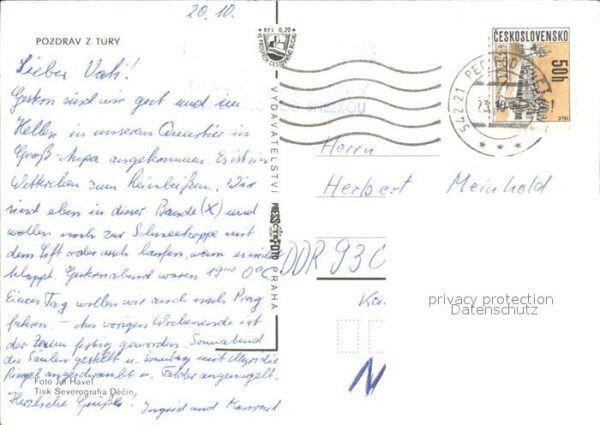 20.10.
POZDRAV Z TÚRY
Lieber Vati!
Gestern sind wir gut und im
Hellen in unserem Quartier in
Groß-Aupa angekommen. Es ist ein
Wetterchen zum Reinbeißen. Wir
sind eben in dieser Baude (X) und
wollen noch zur Schneekoppe mit
dem Lift oder auch laufen, wenn es nicht
klappt. Gestern abend waren 19⁰⁰ 0°C.
Einen Tag wollen wir auch nach Prag
fahren. – Am vorigen Wochenende ist
der Zaun fertig geworden. Sonnabend
die Säulen gestellt u. Sonntag mit
Riegel angeschraubt u. Felder angenagelt.
Foto Jiří Havel
Tisk Severografia Děčín
Herzliche Grüße Ingrid und Konrad
Kčs 0,20
VYDAVATELSTVÍ
PRESSFOTO
PRAHA
ČESKOSLOVENSKO
50h
542 21 PEC POD
Herrn
Herbert Meinhold
DDR 93
privacy protection
Datenschutz
N